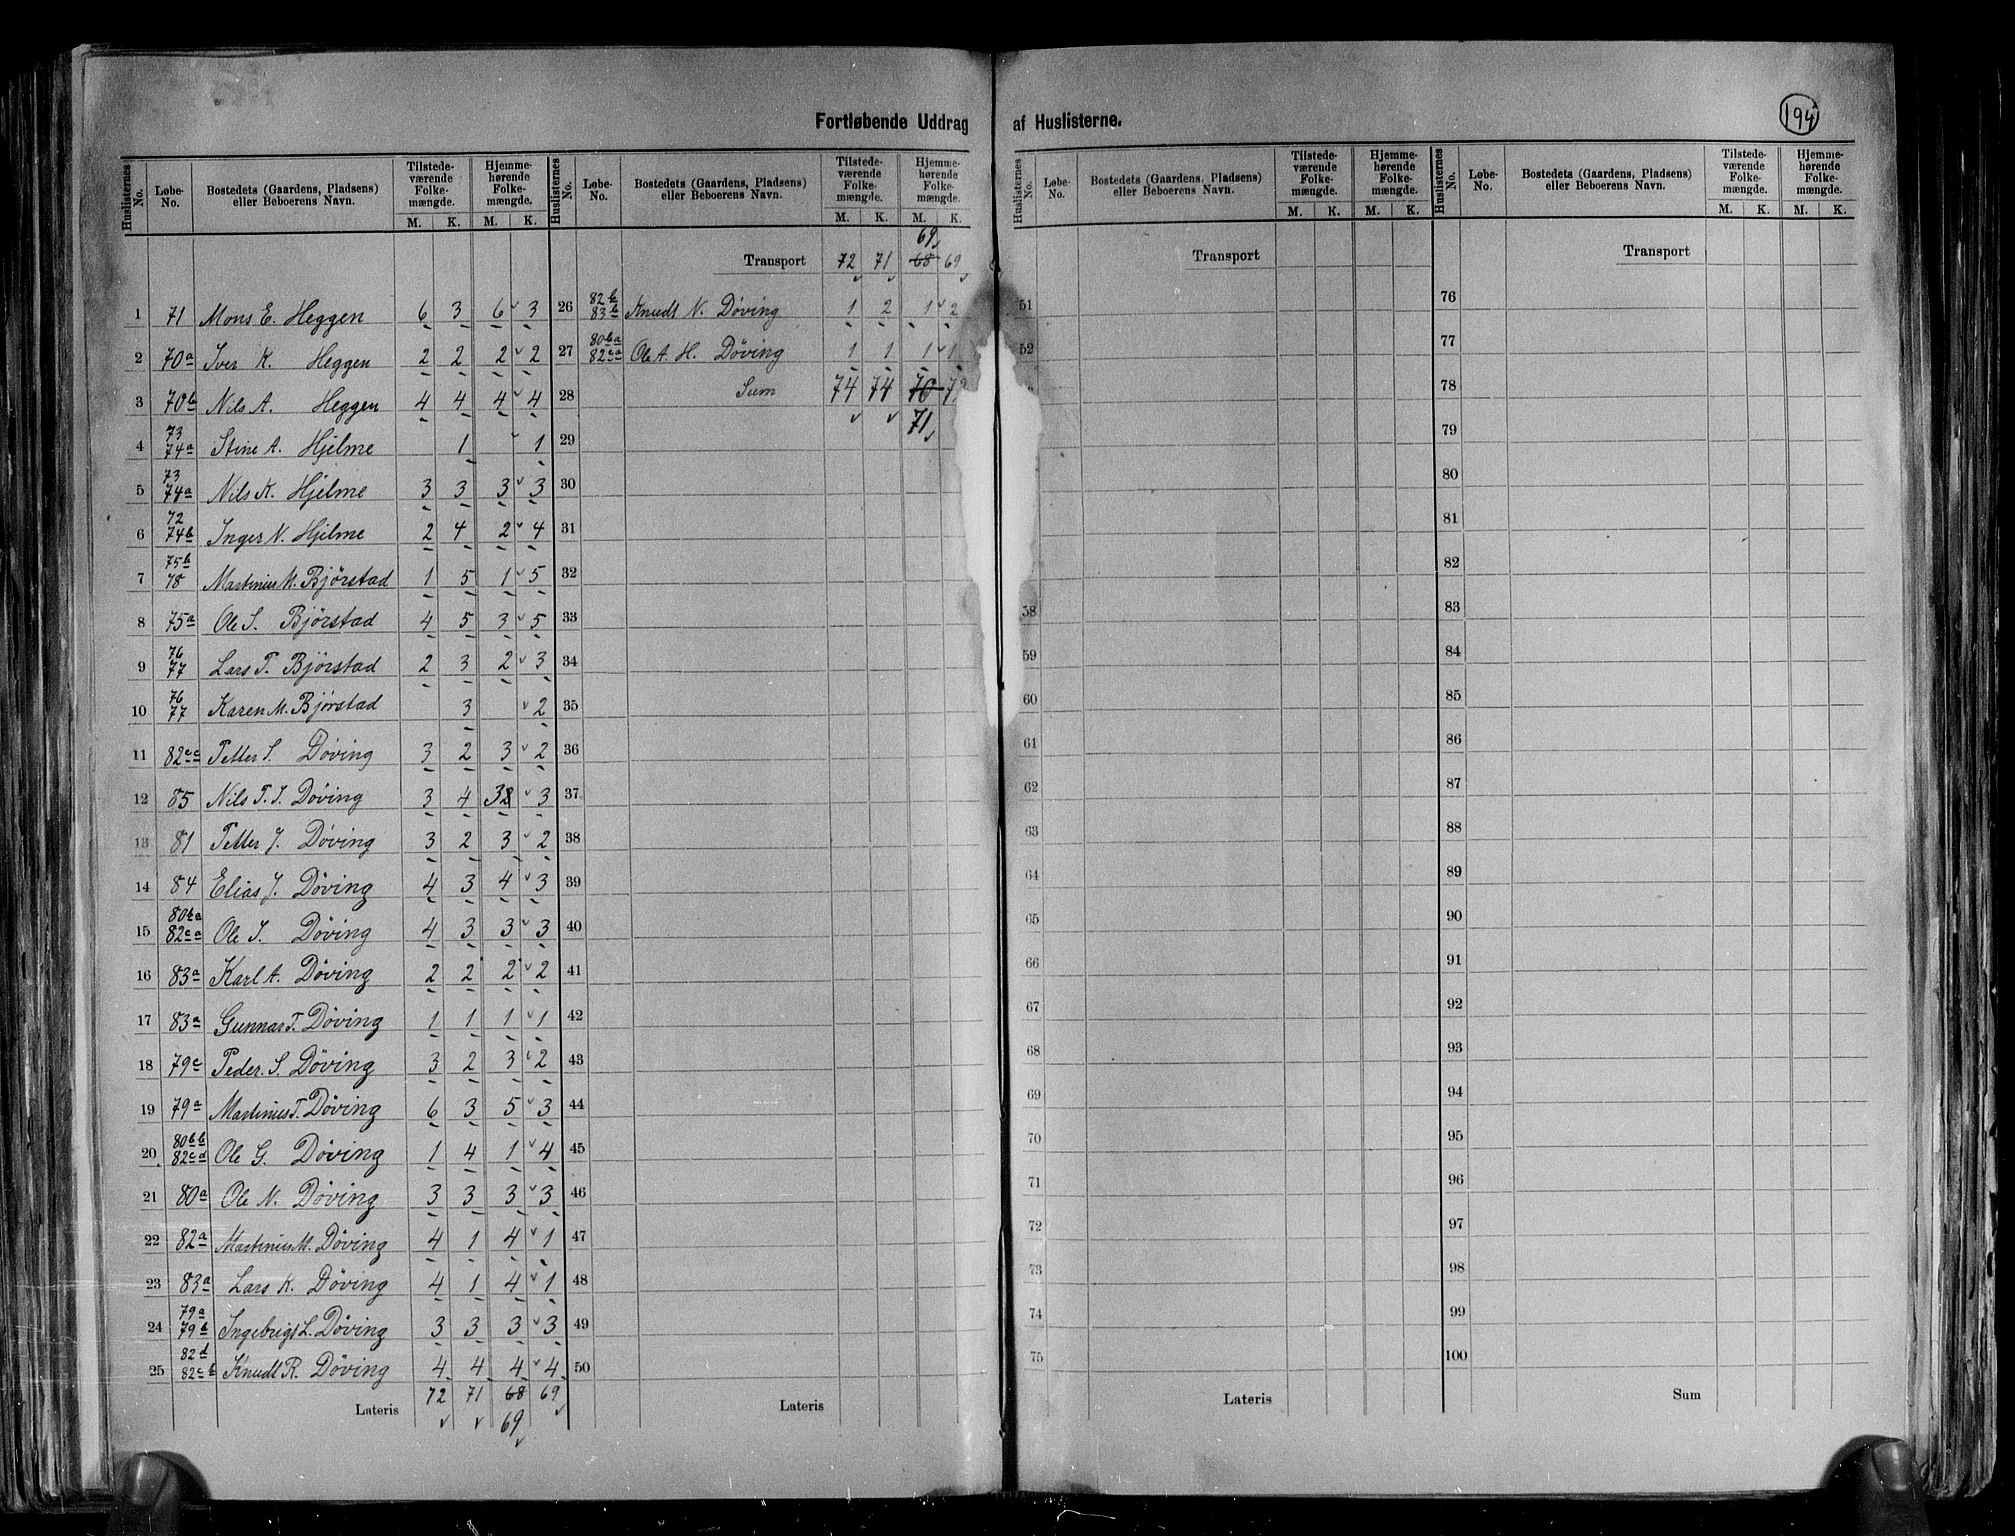 Fortløbende Uddrag af Huslisterne.
194
Huslisternes No. Løbe-No. Bostedets (Gaardens, Pladsens) eller Beboerens Navn. Tilstedeværende Folkemængde. M. K. Hjemmehørende Folkemængde. M. K.
1 71 Mons E. Heggen 6 3 6 3
2 70a Iver K. Heggen 2 2 2 2
3 70b Nils A. Heggen 4 4 4 4
4 73 74a Stine A. Hjelme 1 1
5 73 74a Nils K. Hjelme 3 3 3 3
6 72 74b Inger N. Hjelme 2 4 2 4
7 75b 78 Martinius M. Bjørstad 1 5 1 5
8 75a Ole S. Bjørstad 4 5 3 5
9 76 77 Lars T. Bjørstad 2 3 2 3
10 76 77 Karen M. Bjørstad 3 2
11 82cc Petter S. Døving 3 2 3 2
12 85 Nils P. J. Døving 3 4 3 3
13 81 Petter J. Døving 3 2 3 2
14 84 Elias J. Døving 4 3 4 3
15 80ba 82ca Ole I. Døving 4 3 3 3
16 83a Karl A. Døving 2 2 2 2
17 83a Gunnar P. Døving 1 1 1 1
18 79c Peder S. Døving 3 2 3 2
19 79a Martinius P. Døving 6 3 5 3
20 80bb 82cd Ole G. Døving 1 4 1 4
21 80a Ole N. Døving 3 3 3 3
22 82a Martinius M. Døving 4 1 4 1
23 83a Lars K. Døving 4 1 4 1
24 79a 79b Ingebrigt L. Døving 3 3 3 3
25 82d 82cb Knudt R. Døving 4 4 4 4
Lateris 72 71 68 69
69
Huslisternes No. Løbe-No. Bostedets (Gaardens, Pladsens) eller Beboerens Navn. Tilstedeværende Folkemængde. M. K. Hjemmehørende Folkemængde. M. K.
69
Transport 72 71 68 69
26 82b 83b Knudt N. Døving 1 2 1 2
27 80ba 82ca Ole A. H. Døving 1 1 1 1
28 Sum 74 74 70
71
29
30
31
32
33
34
35
36
37
38
39
40
41
42
43
44
45
46
47
48
49
50
Lateris
Huslisternes No. Løbe-No. Bostedets (Gaardens, Pladsens) eller Beboerens Navn. Tilstedeværende Folkemængde. M. K. Hjemmehørende Folkemængde. M. K.
Transport
51
52
58
59
60
61
62
63
64
65
66
67
68
69
70
71
72
73
74
75
Lateris
Huslisternes No. Løbe-No. Bostedets (Gaardens, Pladsens) eller Beboerens Navn. Tilstedeværende Folkemængde. M. K. Hjemmehørende Folkemængde. M. K.
Transport
76
77
78
79
80
81
82
83
84
85
86
87
88
89
90
91
92
93
94
95
96
97
98
99
100
Sum